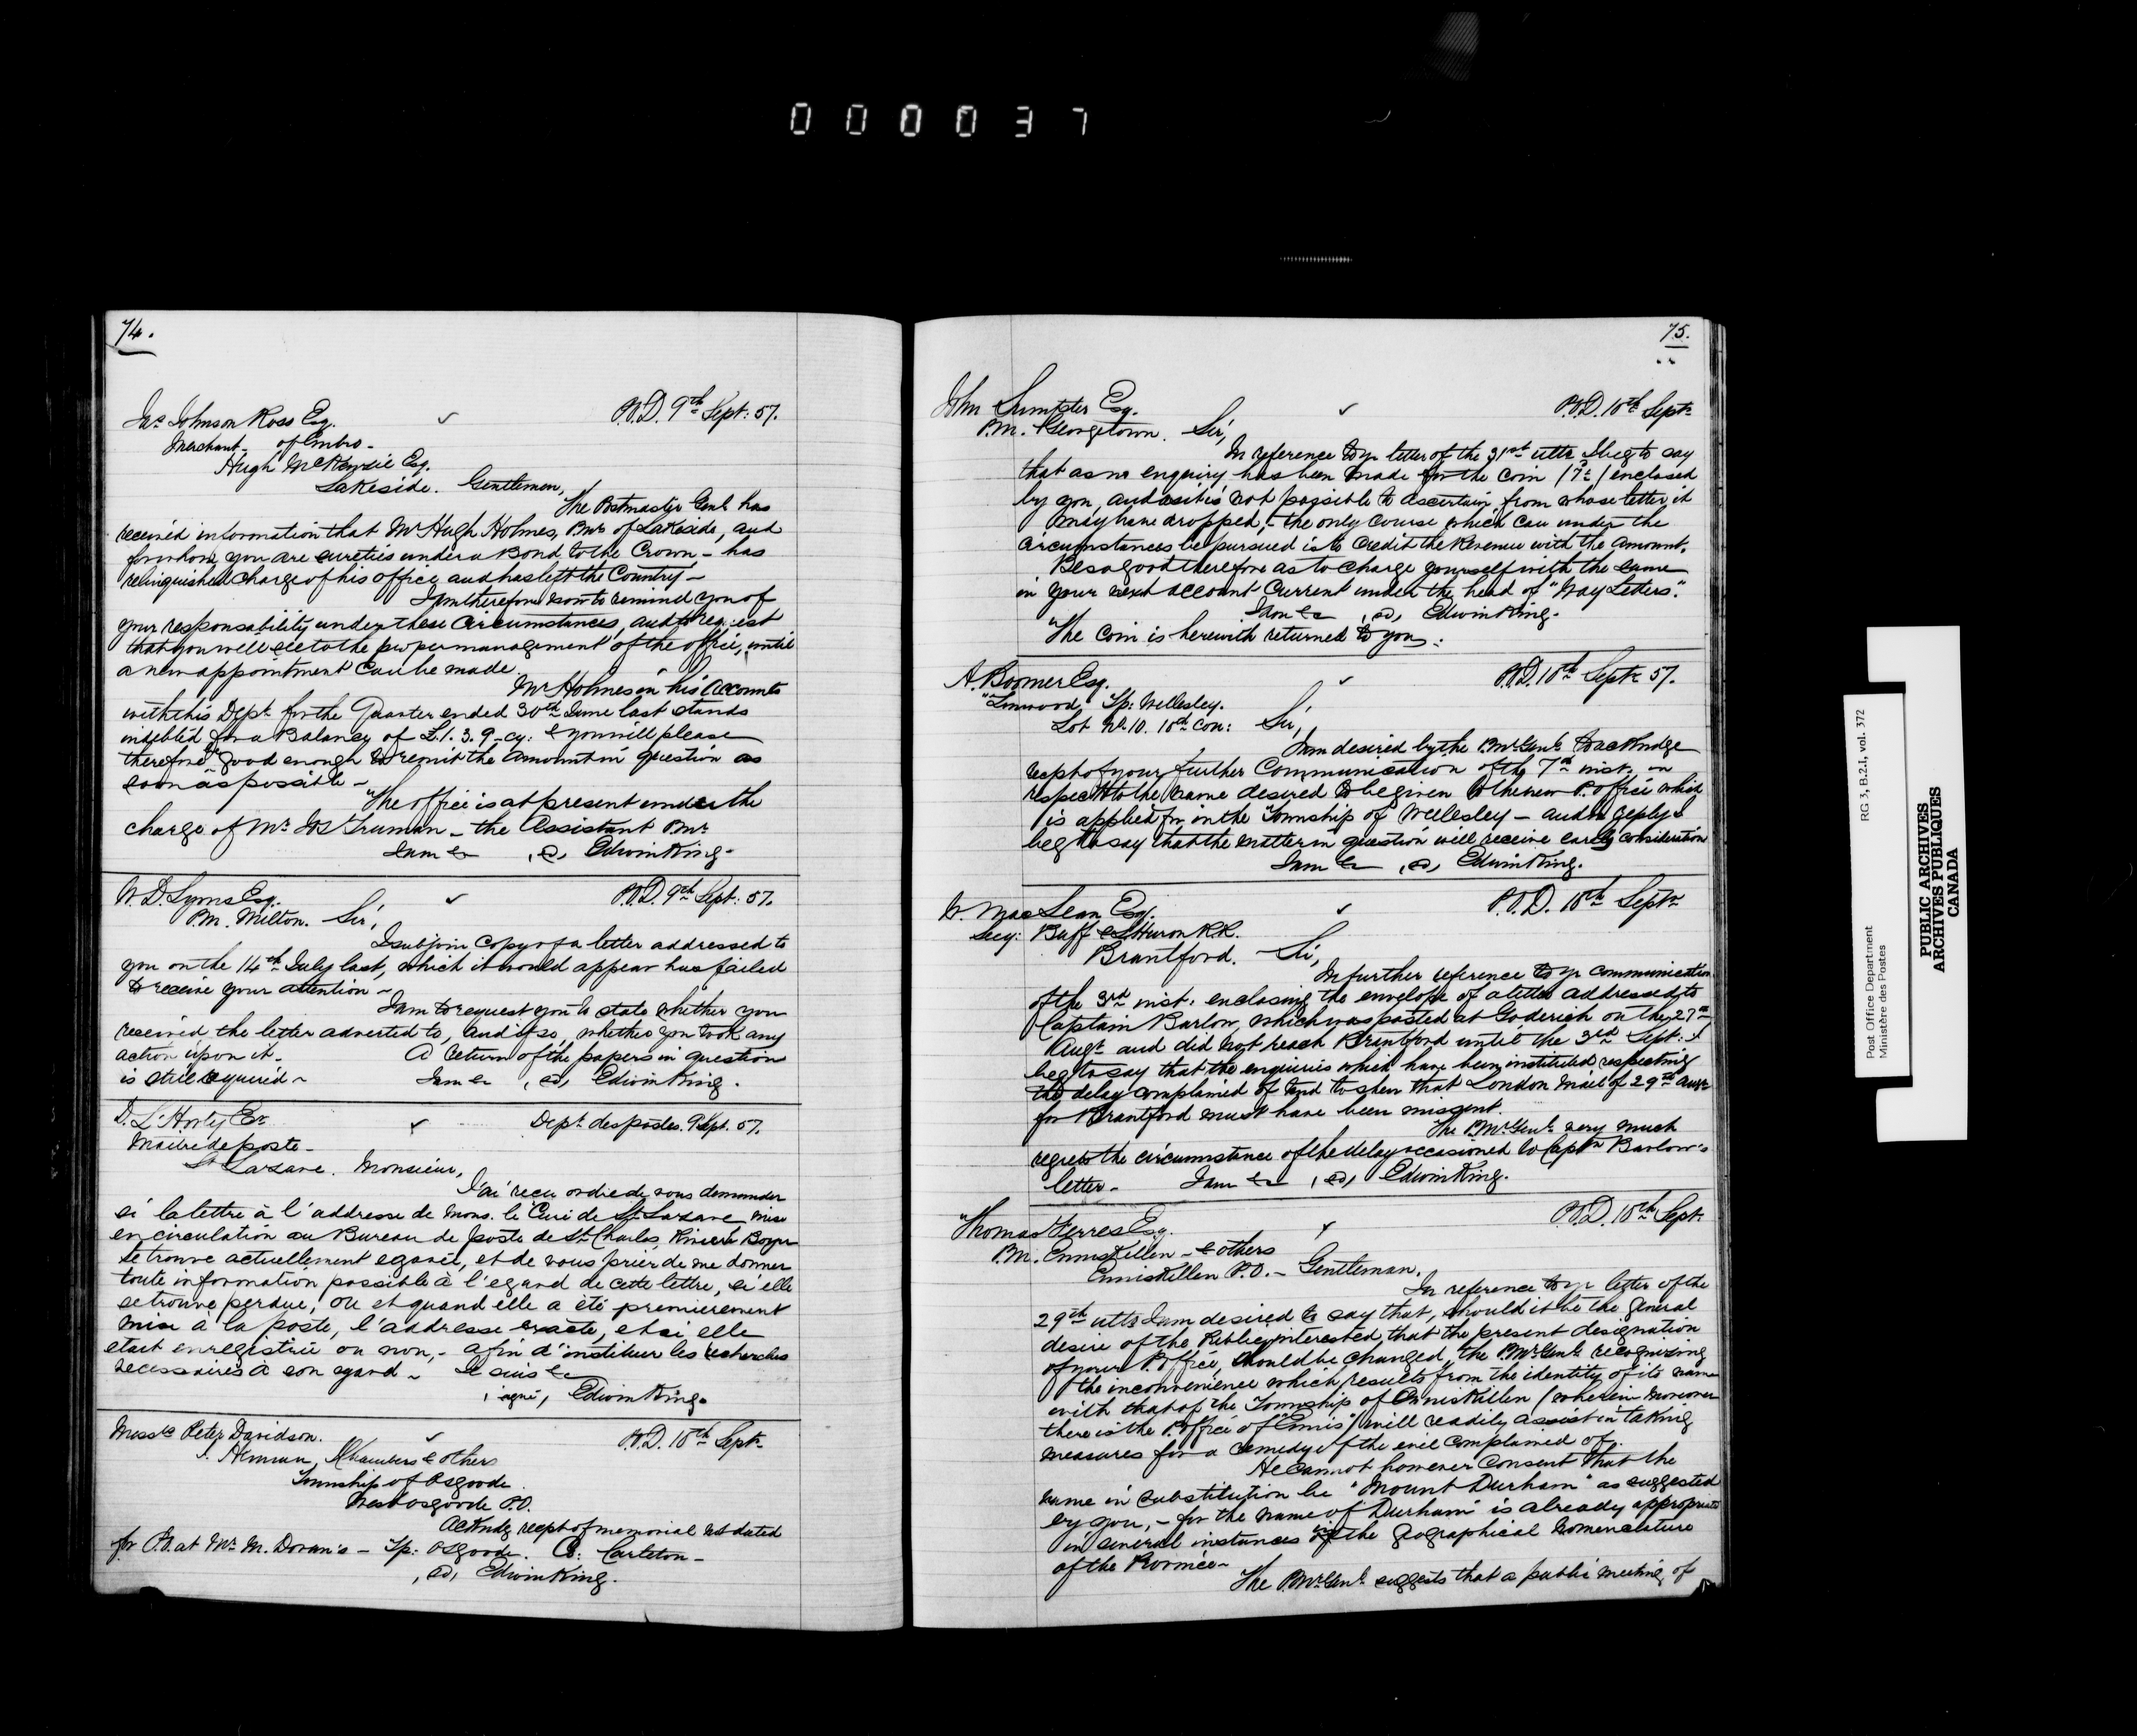 000037
74.
Jas Johnson Ross Esq.
P.O.D. 9th Sept: 57.
Merchant of Embro -
Hugh McKenzie Esq.
Lakeside. Gentlemen,
The Postmaster Genl has
received information that Mr Hugh Holmes, Pmr of Lakeside, and
for whom you are sureties under a Bond to the Crown - has
relinquished charge of his office and has left the Country -
I am therefore now to remind you of
your responsability under these Circumstances, and to request
that you will see to the proper management of the office, until
a new appointment Can be made.
Mr Holmes in his Accounts
with this Dept for the Quarter ended 30th June last stands
indebted for a Balance of £1. 3. 9 cy: & you will please
therefore be good enough to remit the amount in question as
soon as possible -
The office is at present under the
charge of Mr Truman - the Assistant Pmr
I am &c Edwin King.
W. D. Lyons Esq.
P.O.D. 9th Sept: 57.
P.M. Milton. Sir,
I subjoin Copy of a letter addressed to
you on the 14th July last, which it would appear has failed
to receive your attention -
I am to request you to state whether you
received the letter adverted to, and if so, whether you took any
action upon it. A return of the papers in question
is still required - I am &c Edwin King.
Dept des postes. 9 Sept. 57.
Maitre de poste -
St Lazare. Monsieur,
J'ai reçu ordre de vous demander
si la lettre à l'addresse de Mons. le Curé de St Lazare, mise
en circulation au Bureau de poste de St Charles Rivière Boyer
se trouve actuellement egarée, et de vous prier de me donner
toute information possible à l'egard de cette lettre, si elle
se trouve perdue, où et quand elle a été premierement
mise à la poste, l'addresse exacte, et si elle
etait enregistrée ou non, - afin d'instituer les recherches
necessaires à son egard - Je suis &c
signé, Edwin King.
Messrs Peter Davidson.
P.O.D. 10th Sept
Chambers & others
Township of Osgoode
West Osgoode P.O.
Ackndg recpt of memorial not dated
for P.O. at Mr M. Doran's - Tp: Osgoode. Co: Carleton -
Edwin King.
75.
John Sumpter Esq.
P.O.D. 10th Sept
P.M. Georgetown. Sir,
In reference to yr letter of the 31st ulto I beg to say
that as no enquiry has been made for the Coin enclosed
by you, and as it is not possible to ascertain from whose letter it
may have dropped, - the only course which can under the
circumstances be pursued is to Credit the Revenue with the Amount.
Be so good therefore as to charge yourself with the same
in your next account Current under the head of "Way Letters".
I am &c Edwin King.
The Coin is herewith returned to you.
A. Boomer Esq.
P.O.D. 10th Sept 57.
"Linwood" Tp: Wellesley.
Lot No 10. 10th Con: Sir,
I am desired by the PMr Genl to acknldge
recpt of your further Communication of the 7th inst. in
respect to the name desired to be given to the new P. office which
is applied for in the Township of Wellesley - and in reply I
beg to say that the matter in question will receive early consideration
I am &c Edwin King.
W. MacLean Esq.
P.O.D. 10th Sept
Secy: Buff & L. Huron R.R.
Brantford. Sir,
In further reference to yr communication
of the 3rd inst: enclosing the envelope of a letter addressed to
Captain Barlow, which was posted at Goderich on the 27th
Augt and did not reach Brantford until the 3rd Sept: I
beg to say that the enquiries which have been instituted respecting
the delay complained of tend to shew that London Mail of 29th Augt
for Brantford must have been missent.
The PMr Genl very much
regrets the circumstance of the delay occasioned to Captn Barlow's
letter - I am &c Edwin King.
Thomas Ferres Esq.
P.O.D. 10th Sept
P.M. Enniskillen - & others
Enniskillen P.O. - Gentleman.
In reference to yr letter of the
29th ulto I am desired to say that, should it be the general
desire of the Public interested, that the present designation
of your P. office, should be changed, the PMr Genl recognizing
the inconvenience which results from the identity of its name
with that of the Township of Enniskillen (wherein moreover
there is the P. office of "Ennis") will readily assist in taking
measures for a remedy of the evil complained of.
He cannot however consent that the
name in substitution be "Mount Durham" as suggested
by you, - for the name of "Durham" is already appropriated
in several instances in the geographical Nomenclature
of the Province -
The PMr Genl suggests that a public meeting of
Post Office Department
Ministère des Postes
RG 3, B.2.1, vol. 372
PUBLIC ARCHIVES
ARCHIVES PUBLIQUES
CANADA